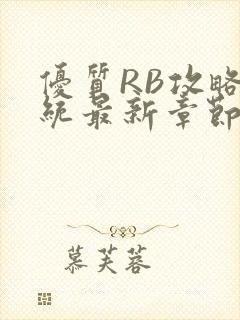 優質RB攻略
統最新章節
慕芙蓉